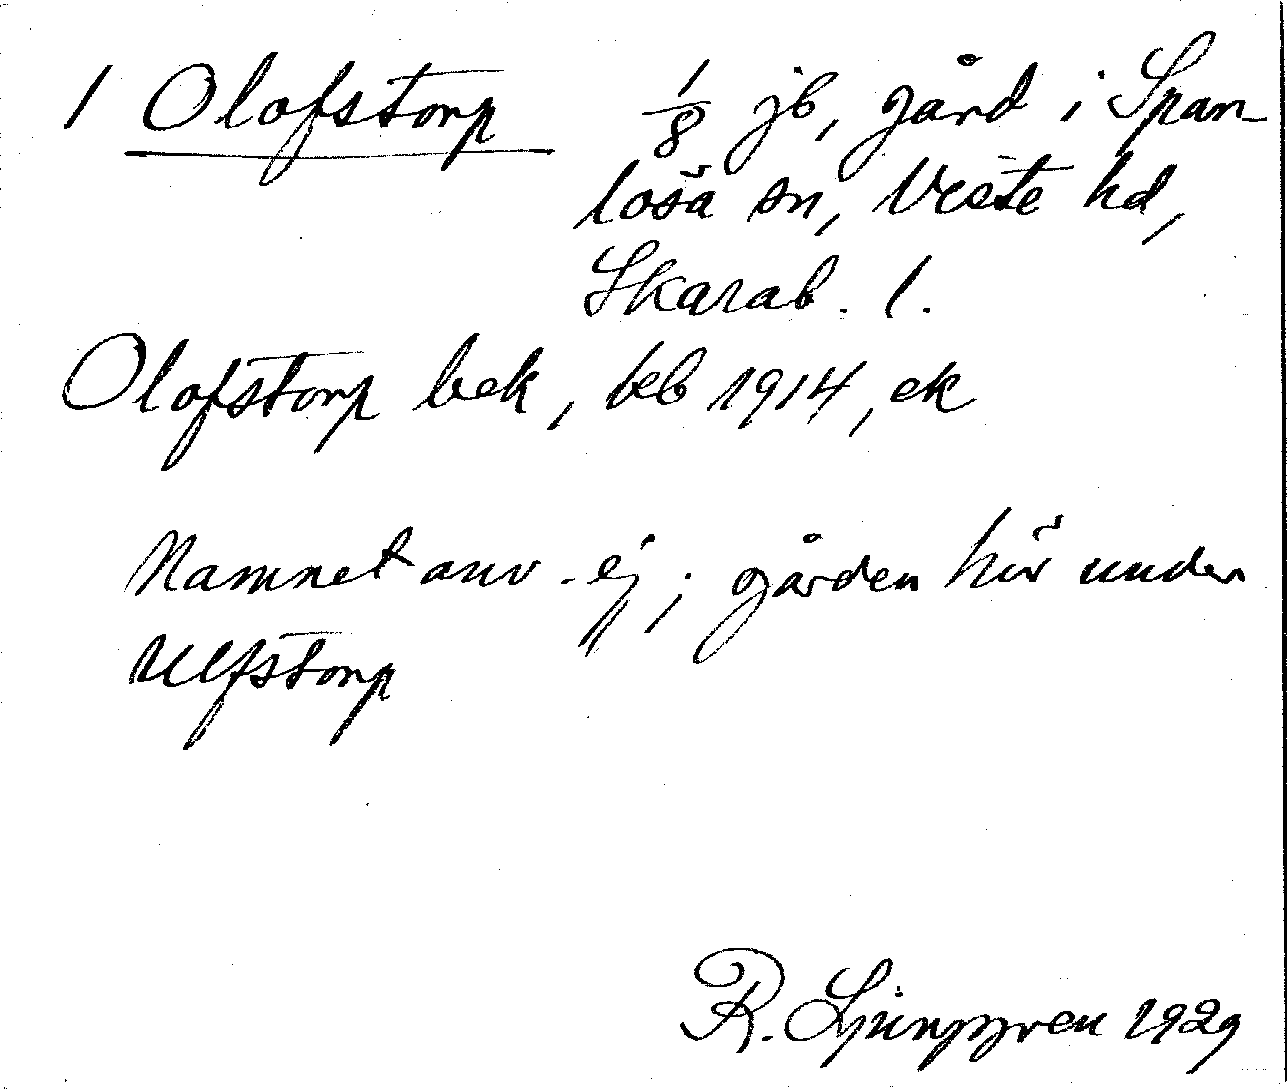 1 Olofstorp 1/8 jb, gård i Span-
lösa sn, Viste hd,
Skarab. l.
Olofstorp bek, beb 1914, ek
Namnet anv. ej; gården hör under
Ulfstorp
R. Ljunggren 1929